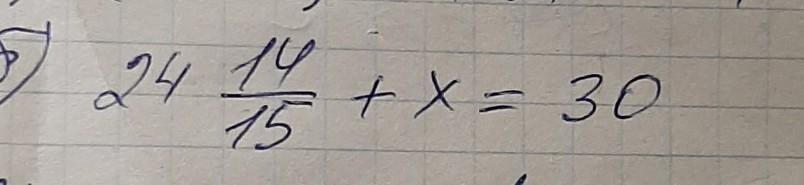 б) 24 14/15 + x = 30